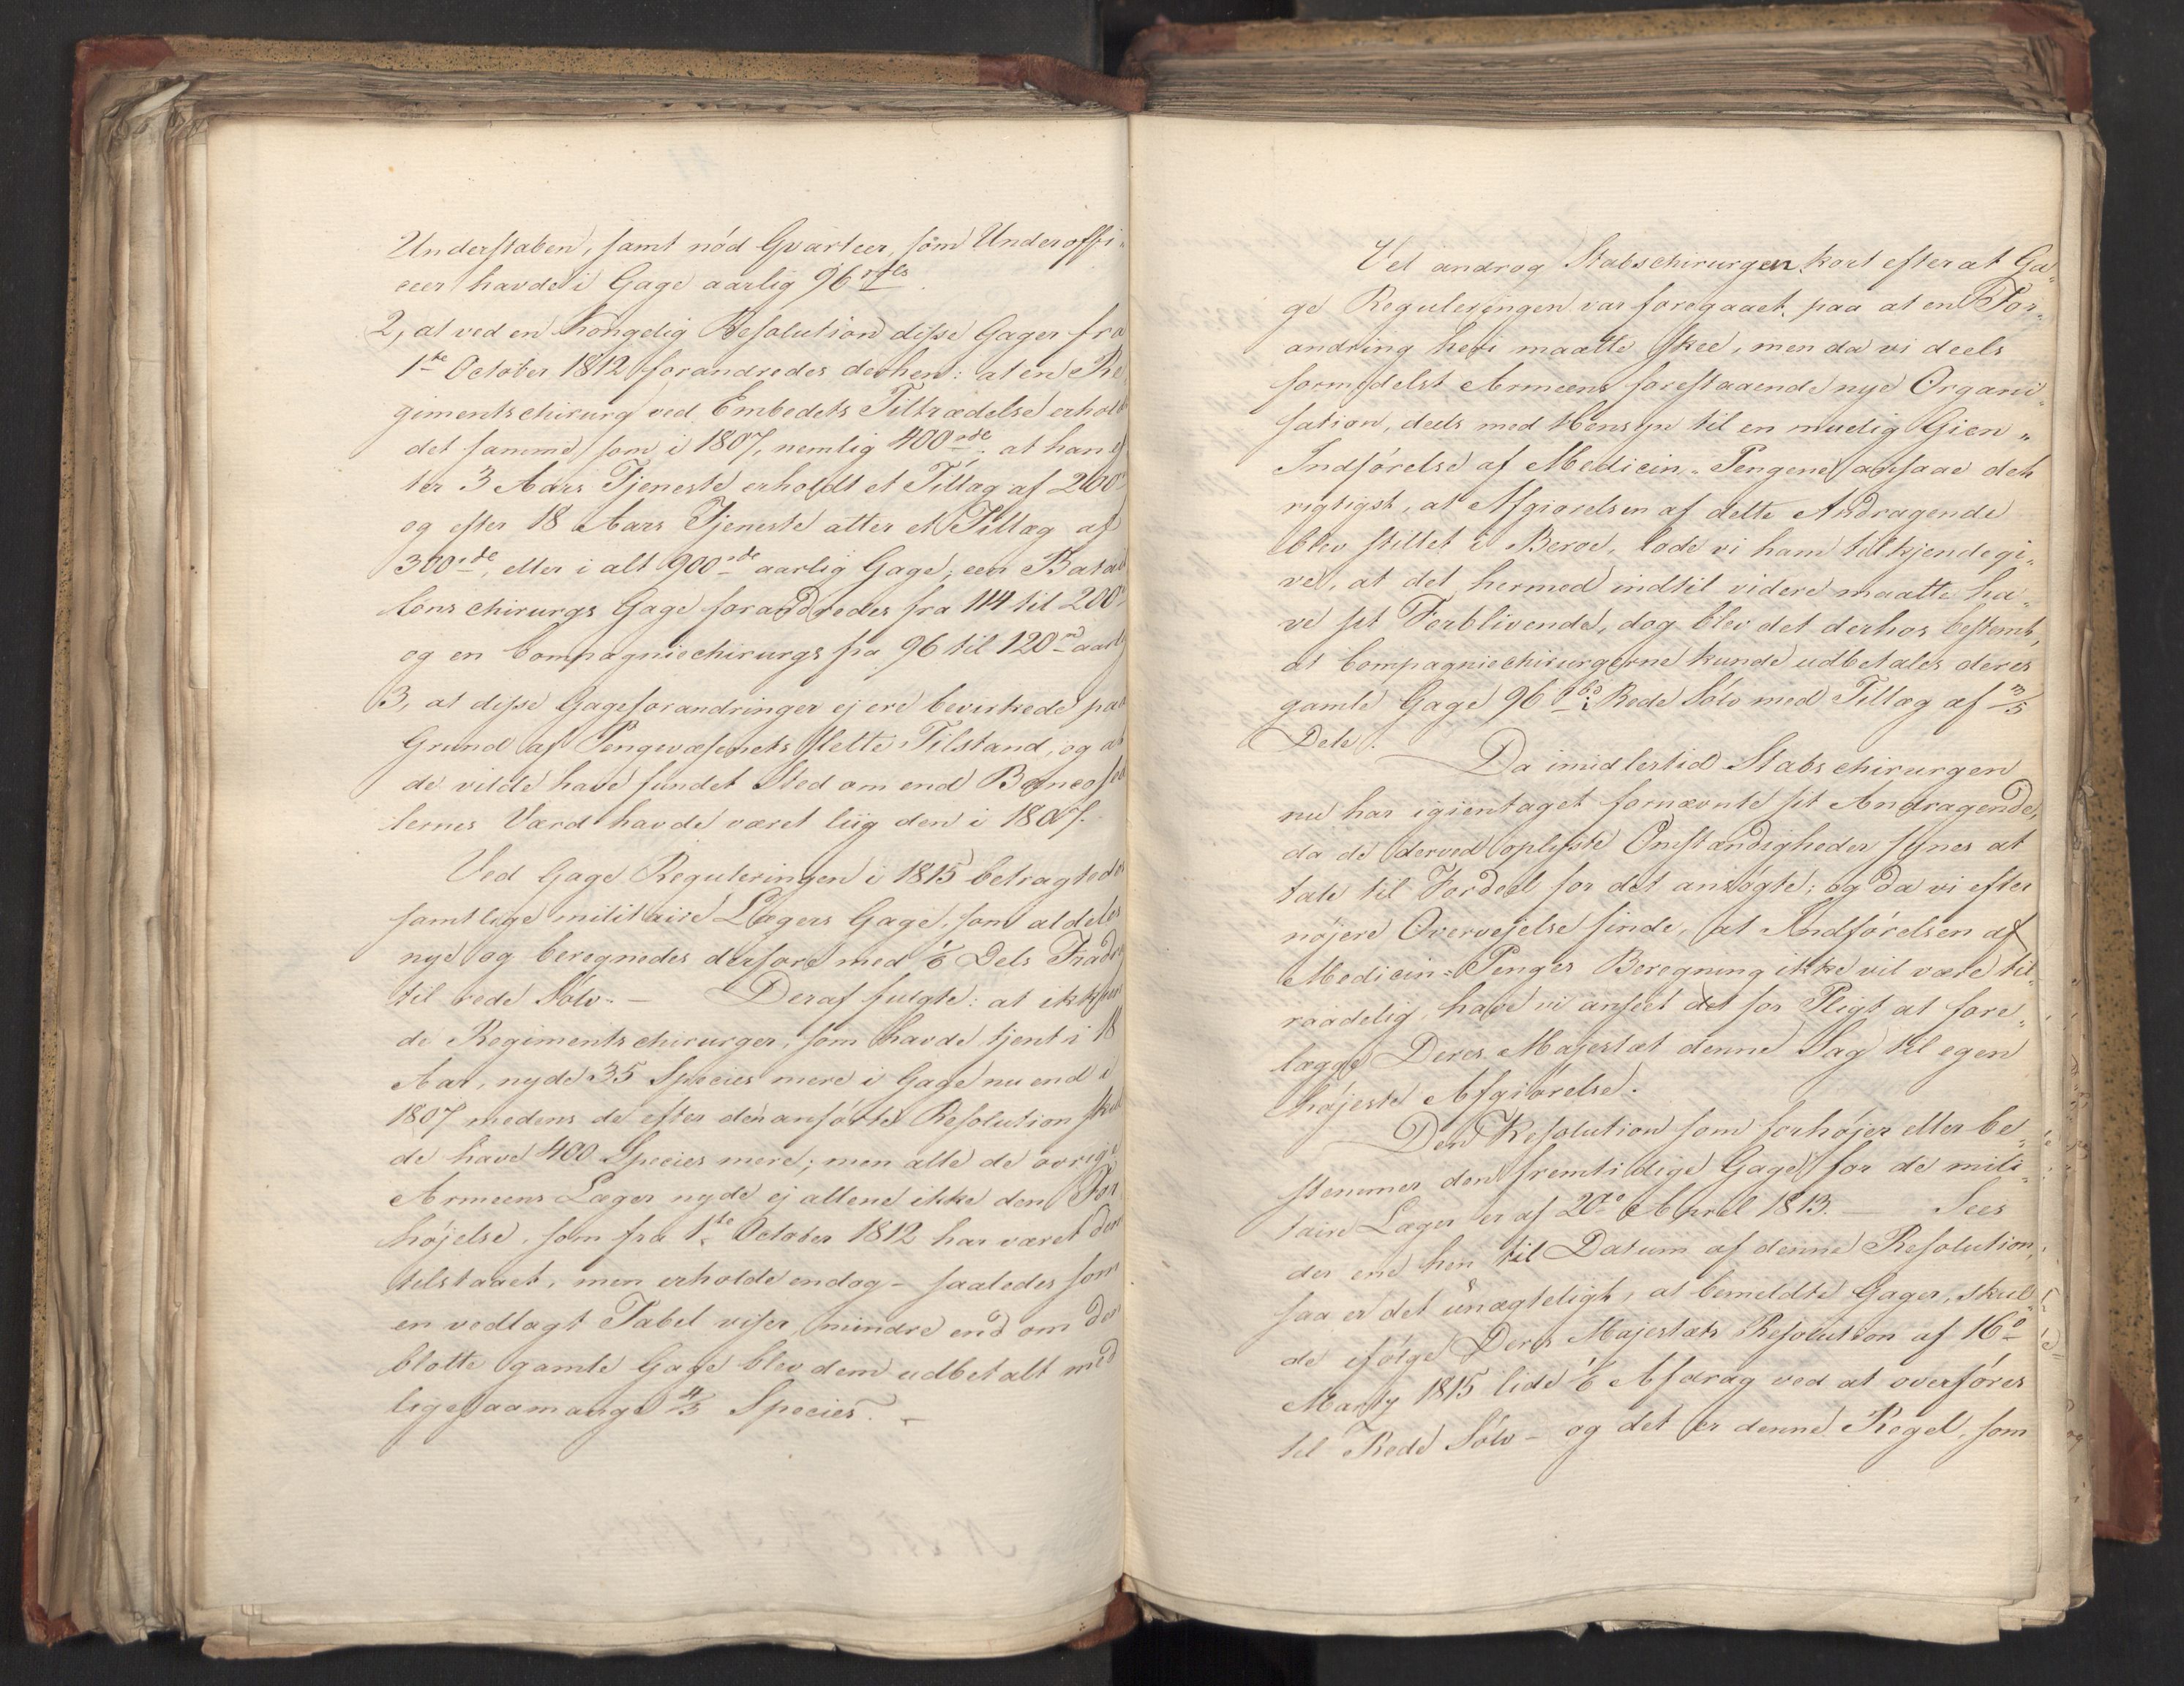 Understaben, samt nöd Qvarteer, som Underoffi-
ceer havde i Gage aarlig 96 rdlr.
2, at ved en Kongelig Resolution disse Gager fra
1ste October 1812 forandredes derhen: at en Re-
gimentschirurg ved Embedets Tiltrædelse erholdt
det samme som i 1807, nemlig 400 rdr. at han ef
ter 3 Aars Tjeneste erholdt et Tillæg af 200
og efter 18 Aars Tjeneste atter et Tillæg af
300 rde, eller i alt 900 rde aarlig Gage; een Batail
lons chirurgs Gage forandredes fra 114 til 200
og en Compagniechirurgs fra 96 til 120 rd aarlg
3, at disse Gageforandringer ej ere bevirkede paa
Grund af Pengevæsenets slette Tilstand, og at
de vilde have fundet Sted om end Bancosed
lernes Værd havde været liig den i 1807.
Ved Gage Reguleringen i 1815 betragtedes
samtlige militaire Lægers Gage, som aldeles
nye og beregnedes derfore med 1/6 Dels Fradrag
til rede Sölv. — Deraf fulgte: at ikkun
de Regiments chirurger, som havde tjent i 18
Aar, nyde 35 Species mere i Gage nu end i
1807 medens de efter den anförte Resolution skul
de have 400 Species mere; men alle de övrige
Armeens Læger nyde ej allene ikke den For
höjelse, som fra 1ste October 1812 har været dem
tilstaaet, men erholde endog - saaledes som
en vedlagt Tabel viser, mindre end om den
blotte gamle Gage blev dem udbetalt med
ligesaamange 4/5 Species. -
Vel androg Stabschirurgen kort efter at Ga-
ge Reguleringen var foregaaet, paa at en For-
andring heri maatte skee, men da vi deels
formedelst Armeens forestaaende nye Organi-
sation, deels med Hensyn til en muelig Gien-
Indförelse af Medicin-Pengene ansaae det
rigtigst, at Afgiörelsen af dette Andragende
blev stillet i Beroe, lode vi ham tilkjendegi-
ve, at det hermed indtil videre maatte ha-
ve sit Forblivende, dog blev det derhos bestemt,
at Compagniechirurgerne kunde udbetales deres
gamle Gage 96 rbd i Rede Sölv med Tillæg af 3/5
Dele.
Da imidlertid Stabschirurgen
nu har igientaget fornævnte sit Andragende,
da de derved oplyste Omstændigheder synes at
tale til Fordeel for det ansögte; og da vi efter
nöjere Overvejelse finde, at Indförelsen af
Medicin-Penges Beregning ikke vil være til-
raadelig, have vi anseet det for Pligt at fore-
lægge Deres Majestæt denne Sag til egen
höjeste Afgiörelse.
Den Resolution som forhöjer eller be-
stemmer den fremtidige Gage for de mili-
taire Læger er af 20de April 1813. — Sees
der ene hen til Datum af denne Resolution,
saa er det unægteligt, at bemeldte Gager, skul-
de ifölge Deres Majestæts Resolution af 16de
Marty 1815 lide 1/6 Afdrag ved at overföres
til Rede Sölv - og det er denne Regel, som